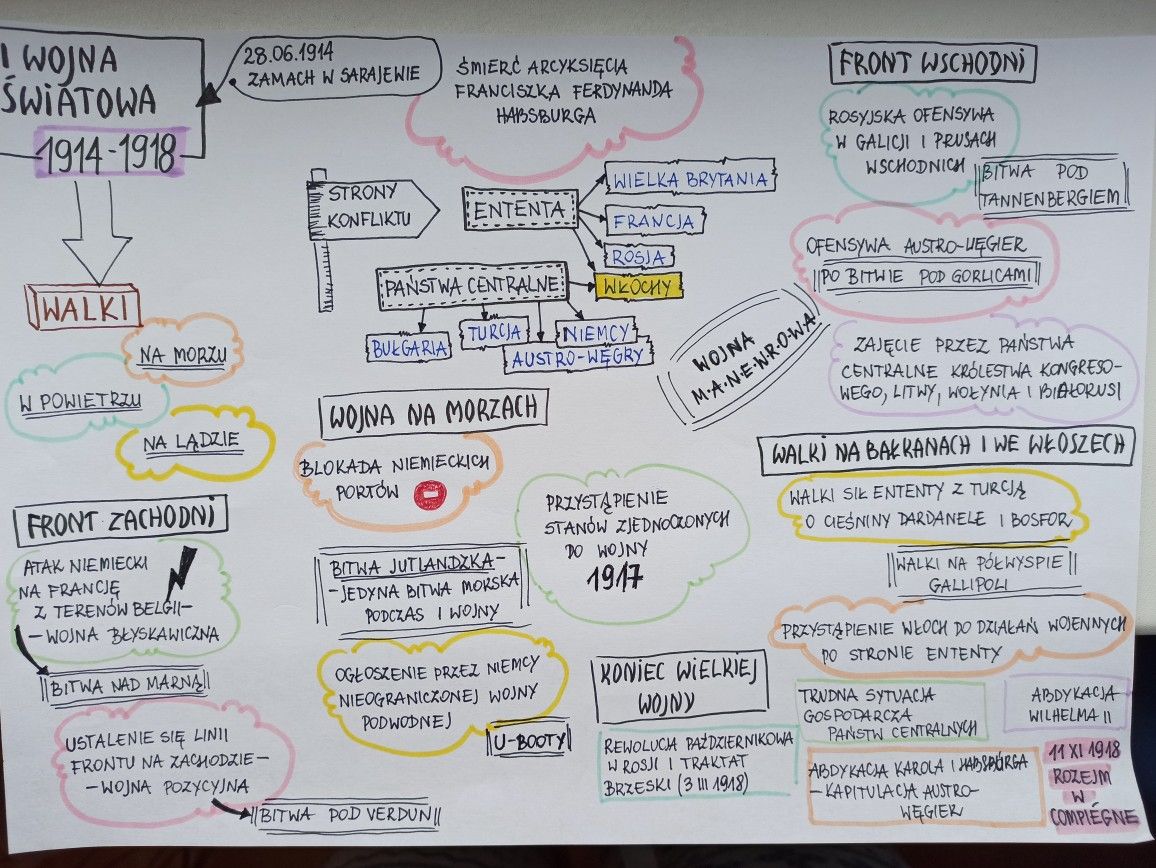 I WOJNA
ŚWIATOWA
1914-1918
28.06.1914
• ZAMACH W SARAJEWIE
ŚMIERĆ ARCYKSIĘCIA
FRANCISZKA FERDYNANDA
HABSBURGA
STRONY
KONFLIKTU
ENTENTA
WIELKA BRYTANIA
FRANCJA
ROSJA
WŁOCHY
PAŃSTWA CENTRALNE
BUŁGARIA
TURCJA
NIEMCY
AUSTRO-WĘGRY
WALKI
NA MORZU
W POWIETRZU
NA LĄDZIE
FRONT ZACHODNI
ATAK NIEMIECKI
NA FRANCJĘ
Z TERENÓW BELGII-
-WOJNA BŁYSKAWICZNA
BITWA NAD MARNĄ
USTALENIE SIĘ LINII
FRONTU NA ZACHODZIE-
-WOJNA POZYCYJNA
BITWA POD VERDUN
WOJNA NA MORZACH
BLOKADA NIEMIECKICH
PORTÓW
BITWA JUTLANDZKA-
-JEDYNA BITWA MORSKA
PODCZAS I WOJNY
OGŁOSZENIE PRZEZ NIEMCY
NIEOGRANICZONEJ WOJNY
PODWODNEJ
U-BOOTY
PRZYSTĄPIENIE
STANÓW ZJEDNOCZONYCH
DO WOJNY
1917
WOJNA
M•A•N•E•W•R•O•W•A
FRONT WSCHODNI
ROSYJSKA OFENSYWA
W GALICJI I PRUSACH
WSCHODNICH
BITWA POD
TANNENBERGIEM
OFENSYWA AUSTRO-WĘGIER
PO BITWIE POD GORLICAMI
ZAJĘCIE PRZEZ PAŃSTWA
CENTRALNE KRÓLESTWA KONGRESO-
WEGO, LITWY, WOŁYNIA I BIAŁORUSI
WALKI NA BAŁKANACH I WE WŁOSZECH
WALKI SIŁ ENTENTY Z TURCJĄ
O CIEŚNINY DARDANELE I BOSFOR
WALKI NA PÓŁWYSPIE
GALLIPOLI
PRZYSTĄPIENIE WŁOCH DO DZIAŁAŃ WOJENNYCH
PO STRONIE ENTENTY
KONIEC WIELKIEJ
WOJNY
REWOLUCJA PAŹDZIERNIKOWA
W ROSJI I TRAKTAT
BRZESKI (3 III 1918)
TRUDNA SYTUACJA
GOSPODARCZA
PAŃSTW CENTRALNYCH
ABDYKACJA
WILHELMA II
ABDYKACJA KAROLA I HABSBURGA
- KAPITULACJA AUSTRO-
WĘGIER
11 XI 1918
ROZEJM
W
COMPIÈGNE